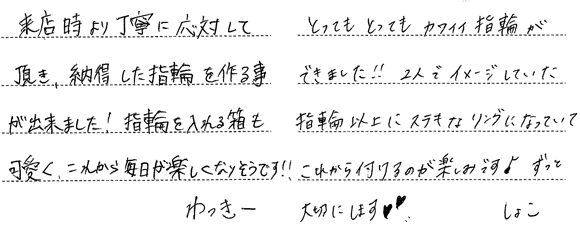 来店時より丁寧に応対して
頂き、納得した指輪を作る事
が出来ました！指輪を入れる箱も
可愛く、これから毎日が楽しくなりそうです!!
わっきー
とってもとってもカワイイ指輪が
できました!! 2人でイメージしていた
指輪以上にステキなリングになっていて
これから付けるのが楽しみです♪ ずっと
大切にします♥♥
しょこ